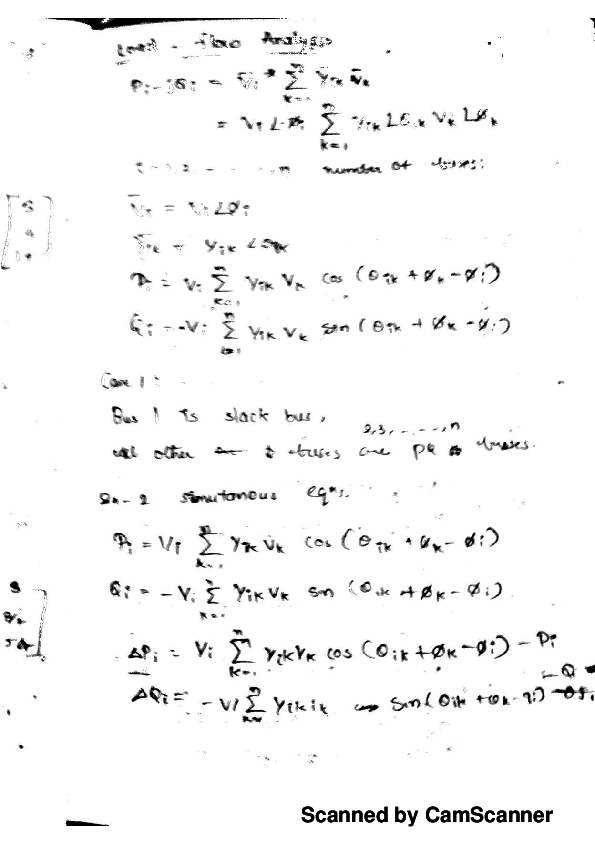 Load - Flow Analysis
Pi - jQi = V̄i* Σ(k=1 to n) Ȳik V̄k
= Vi ∠-øi Σ(k=1 to n) Yik ∠θik Vk ∠øk
i = 1, 2, - - - -, n number of buses:
V̄i = Vi ∠øi
Ȳik = Yik ∠θik
Pi = Vi Σ(k=1 to n) Yik Vk cos (θik + øk - øi)
Qi = -Vi Σ(k=1 to n) Yik Vk sin (θik + øk - øi)
Case 1 :
Bus 1 is slack bus,
2, 3, - - - -, n
all other buses are PQ buses.
2n-2 simutanous eqns.
Pi = Vi Σ(k=1 to n) Yik Vk cos (θik + øk - øi)
Qi = - Vi Σ(k=1 to n) Yik Vk sin (θik + øk - øi)
ΔPi = Vi Σ(k=1 to n) Yik Vk cos (θik + øk - øi) - Pi
ΔQi = - Vi Σ Yik sin (θik + øk - øi) - Qi
Scanned by CamScanner